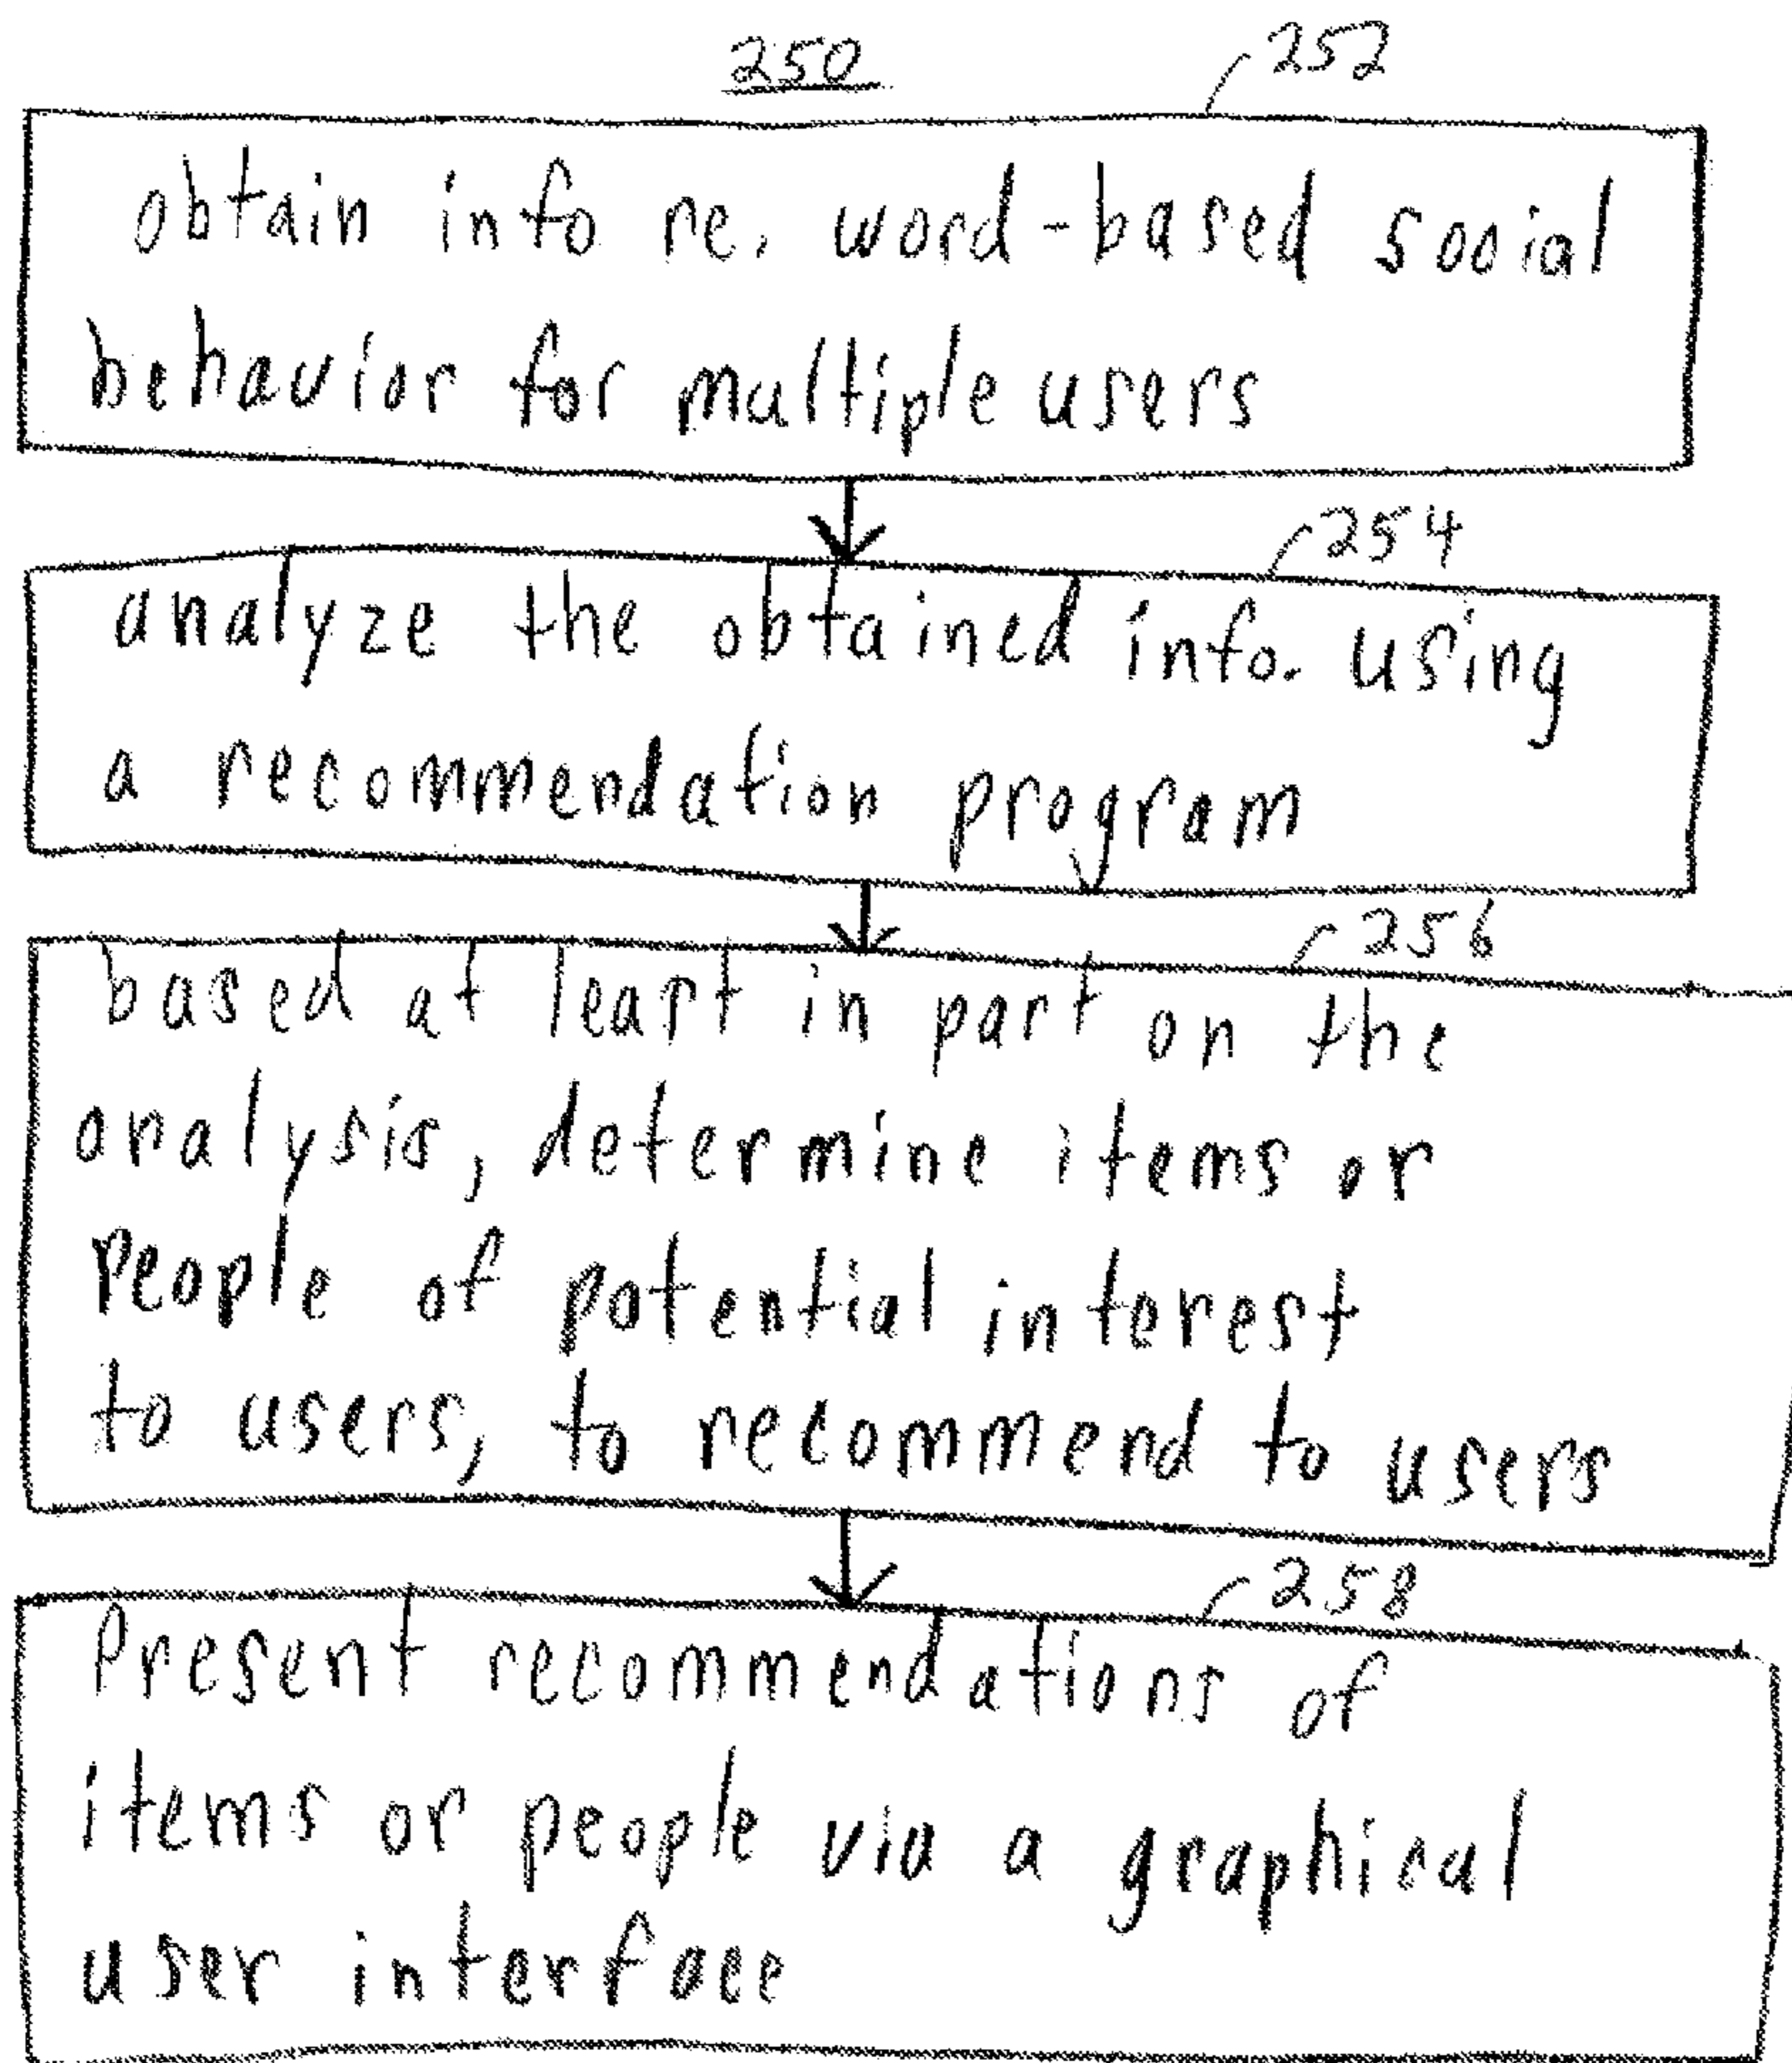 250
252
obtain info re. word-based social
behavior for multiple users
254
analyze the obtained info. using
a recommendation program
256
based at least in part on the
analysis, determine items or
people of potential interest
to users, to recommend to users
258
Present recommendations of
items or people via a graphical
user interface